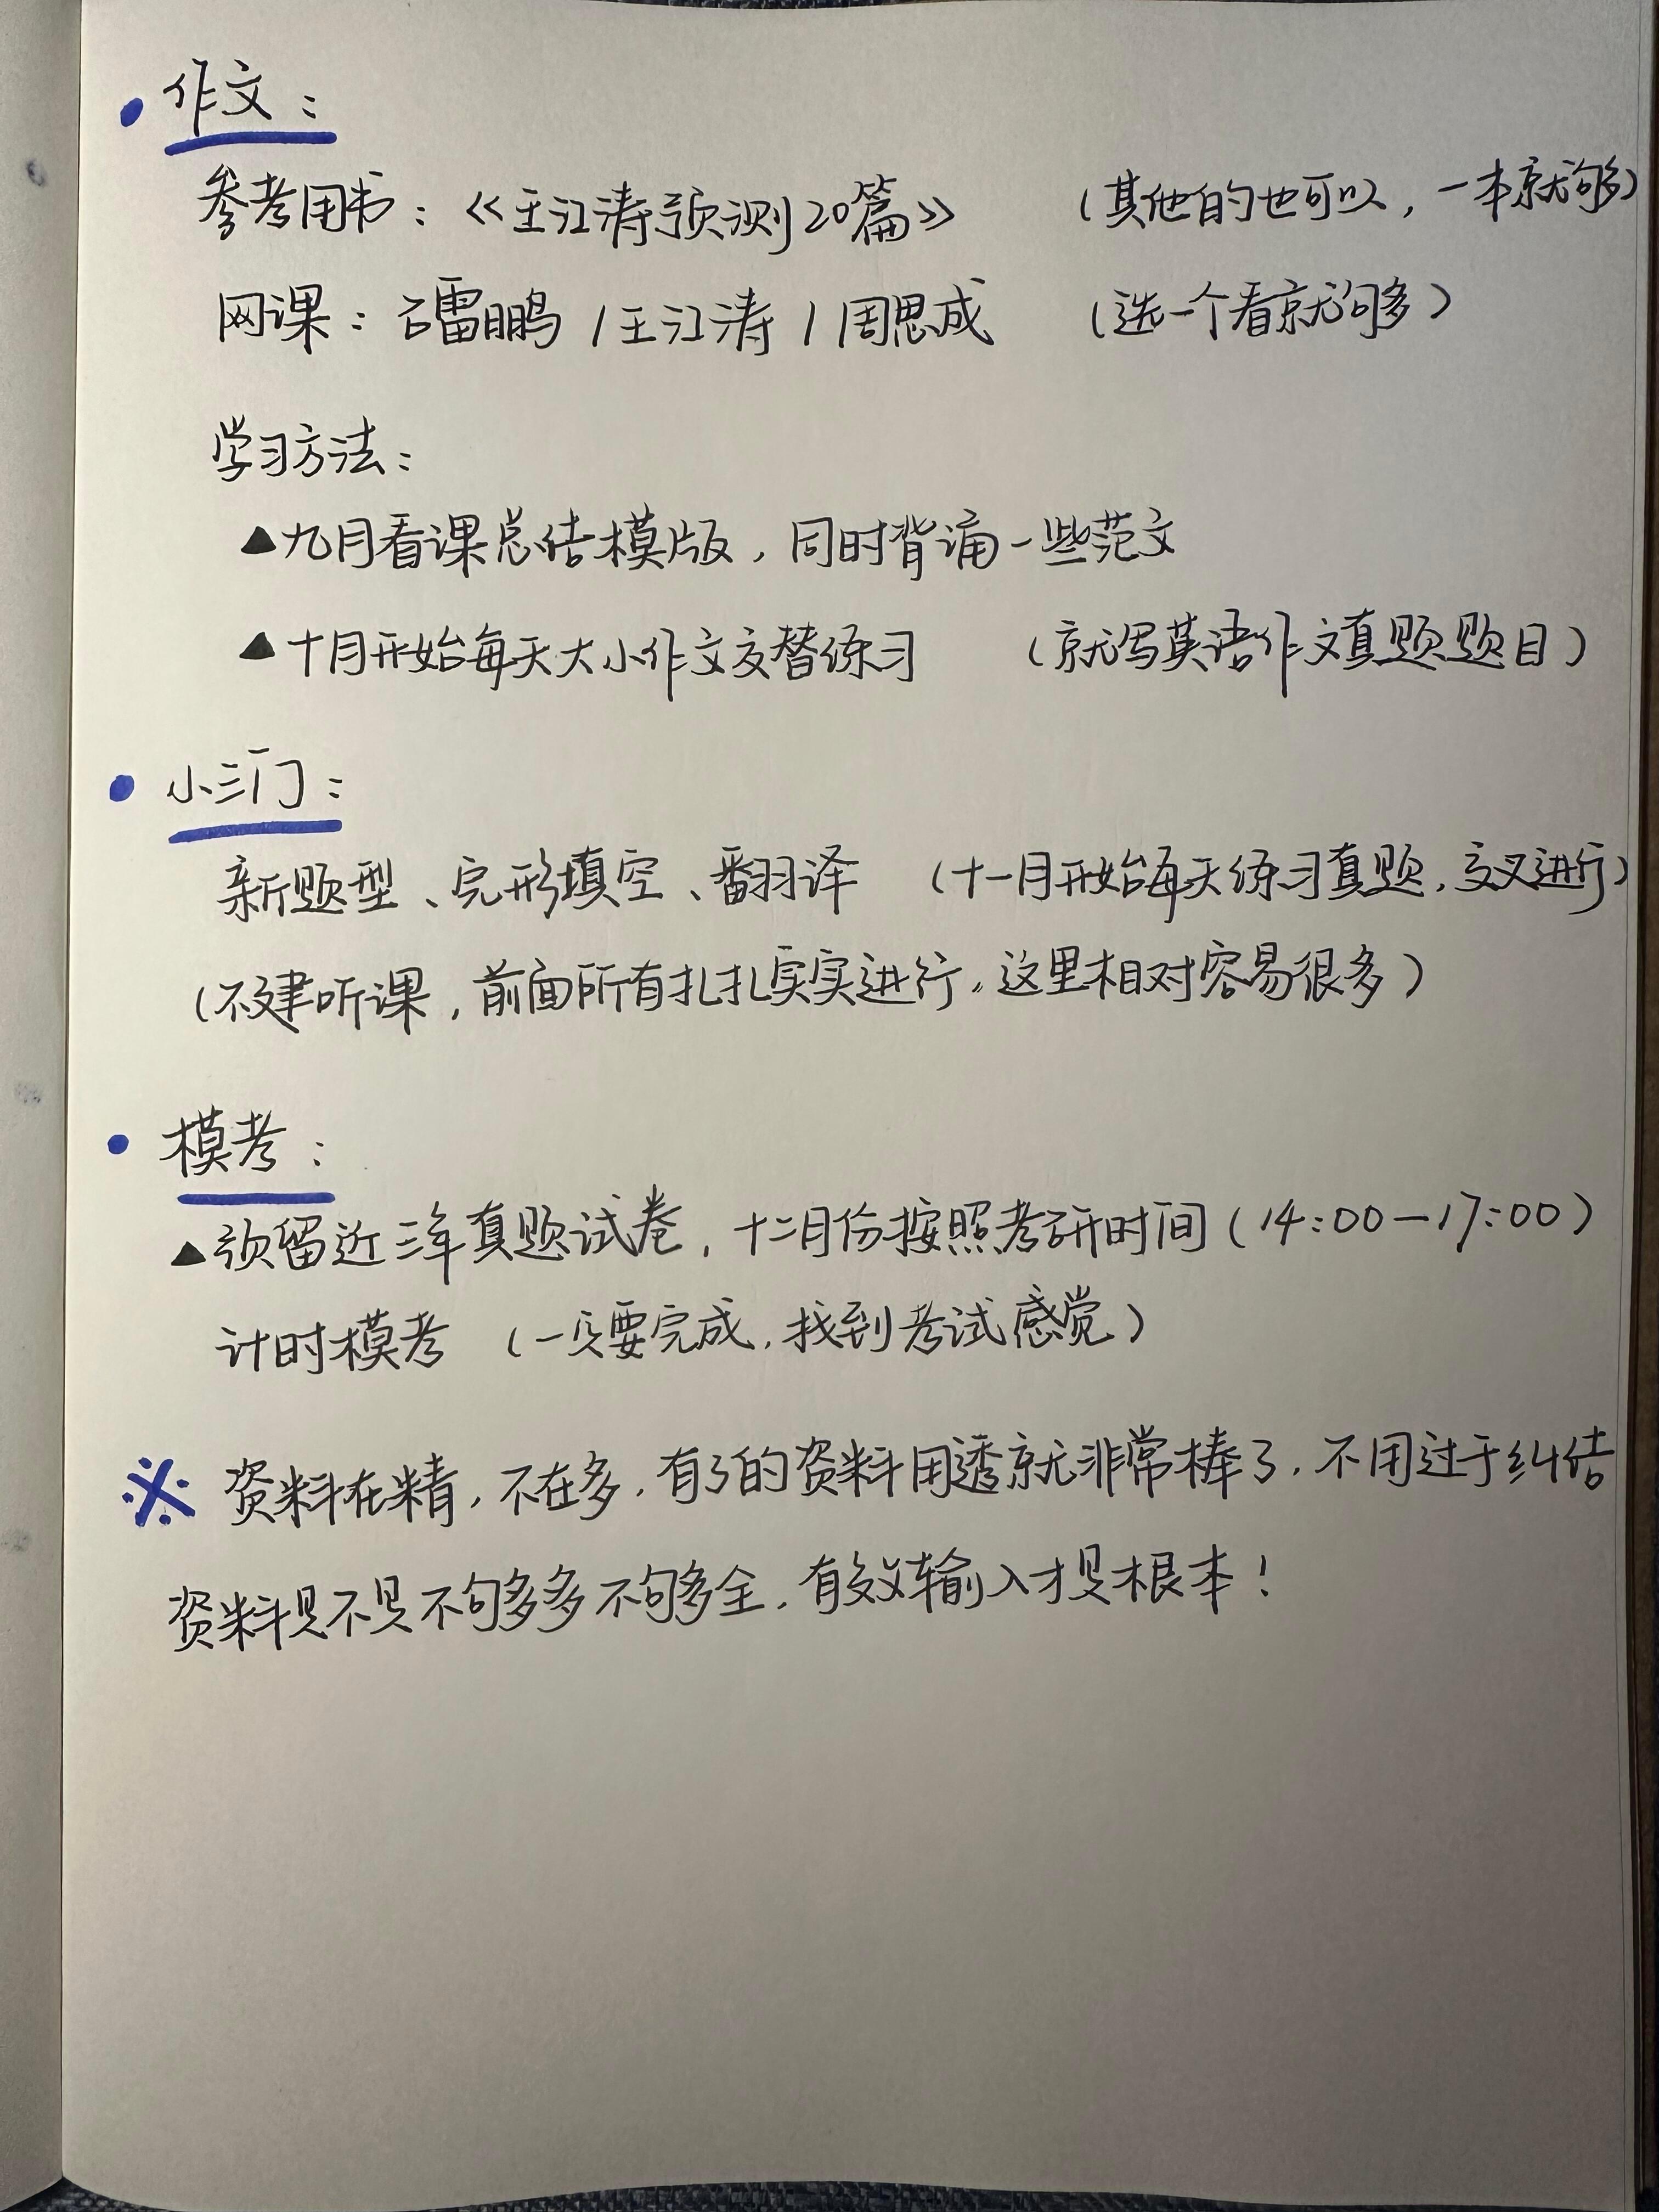 • 作文：
参考用书：《王江涛预测20篇》 （其他的也可以，一本就够）
网课：石雷鹏 / 王江涛 / 周思成 （选一个看就够）
学习方法：
▲九月看课总结模版，同时背诵一些范文
▲十月开始每天大小作文交替练习 （就写英语作文真题题目）
• 小三门：
新题型、完形填空、翻译 （十一月开始每天练习真题，交叉进行）
（不建听课，前面所有扎扎实实进行，这里相对容易很多）
• 模考：
▲预留近三年真题试卷，十二月份按照考研时间（14:00—17:00）
计时模考 （一定要完成，找到考试感觉）
※ 资料在精，不在多，有了的资料用透就非常棒了，不用过于纠结
资料是不是不够多不够全，有效输入才是根本！